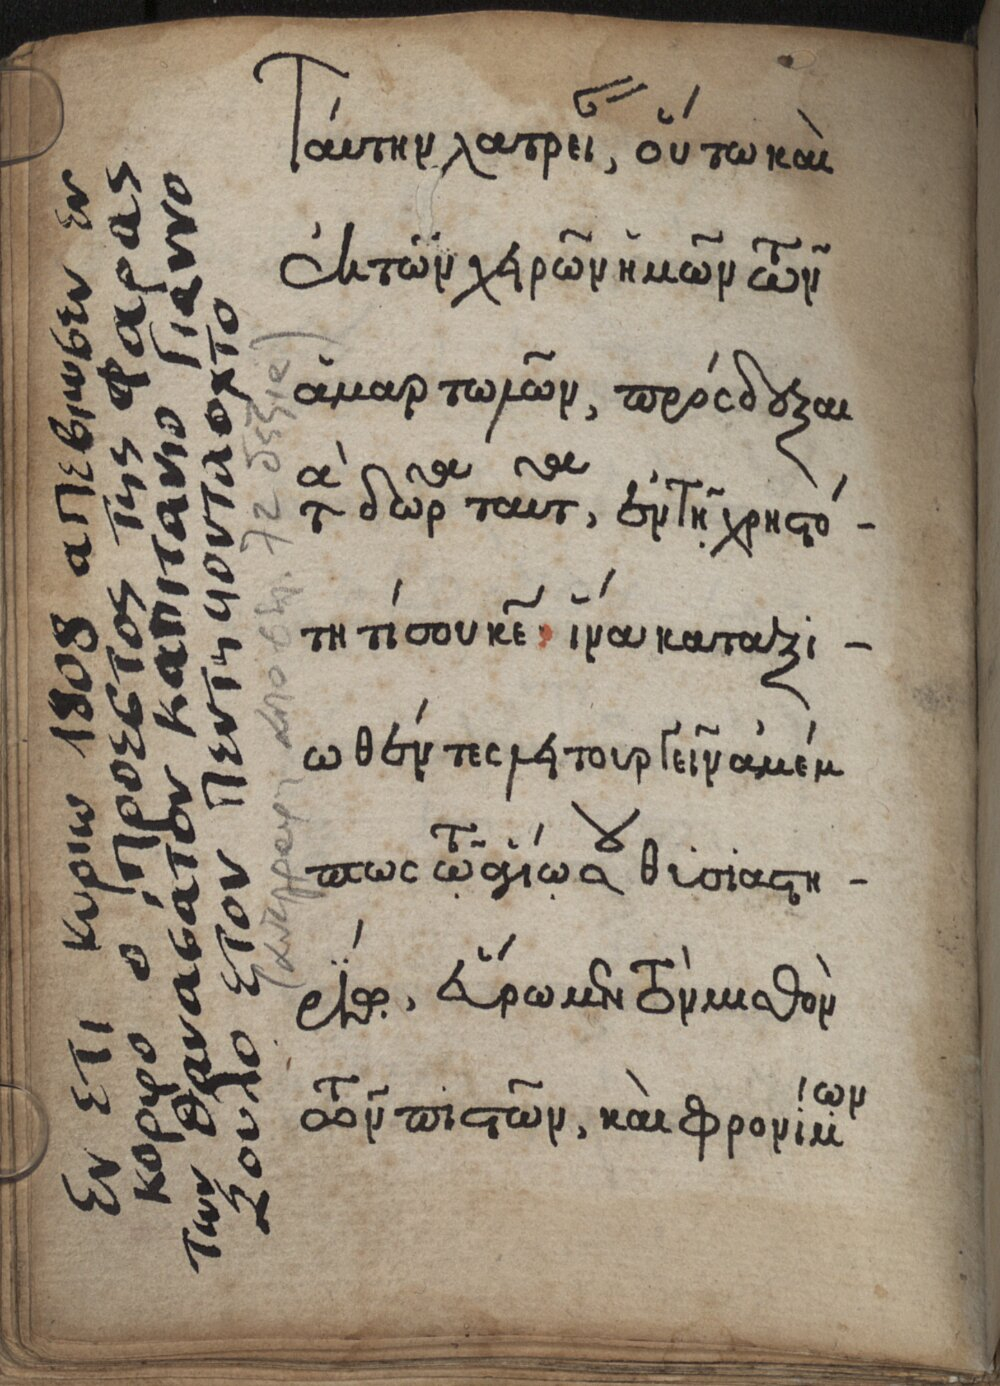 Ταύτην λατρεί, οὕτω καὶ
ἐκ τῶν χειρῶν ἡμῶν τῶν
ἁμαρτωλῶν, πρόσδεξαι
τὰ δῶρα ταῦτα, ἐν τῇ χρηστό-
τητί σου κε̅ · ἵνα καταξι-
ωθέντες λειτουργεῖν ἀμέμ
πτως τῷ ἁγίῳ σου θυσιαστη-
ρίῳ, εὕρωμεν τὸν μισθὸν
τῶν πιστῶν, καὶ φρονίμων
Εν ετι κυριω 1808 απεβιωσεν εν
κορφο ο προεστος της φαρας
των θανασατον καπιτανιο Γιαννο
Ζουλο ετον πεντηκονταοκτο